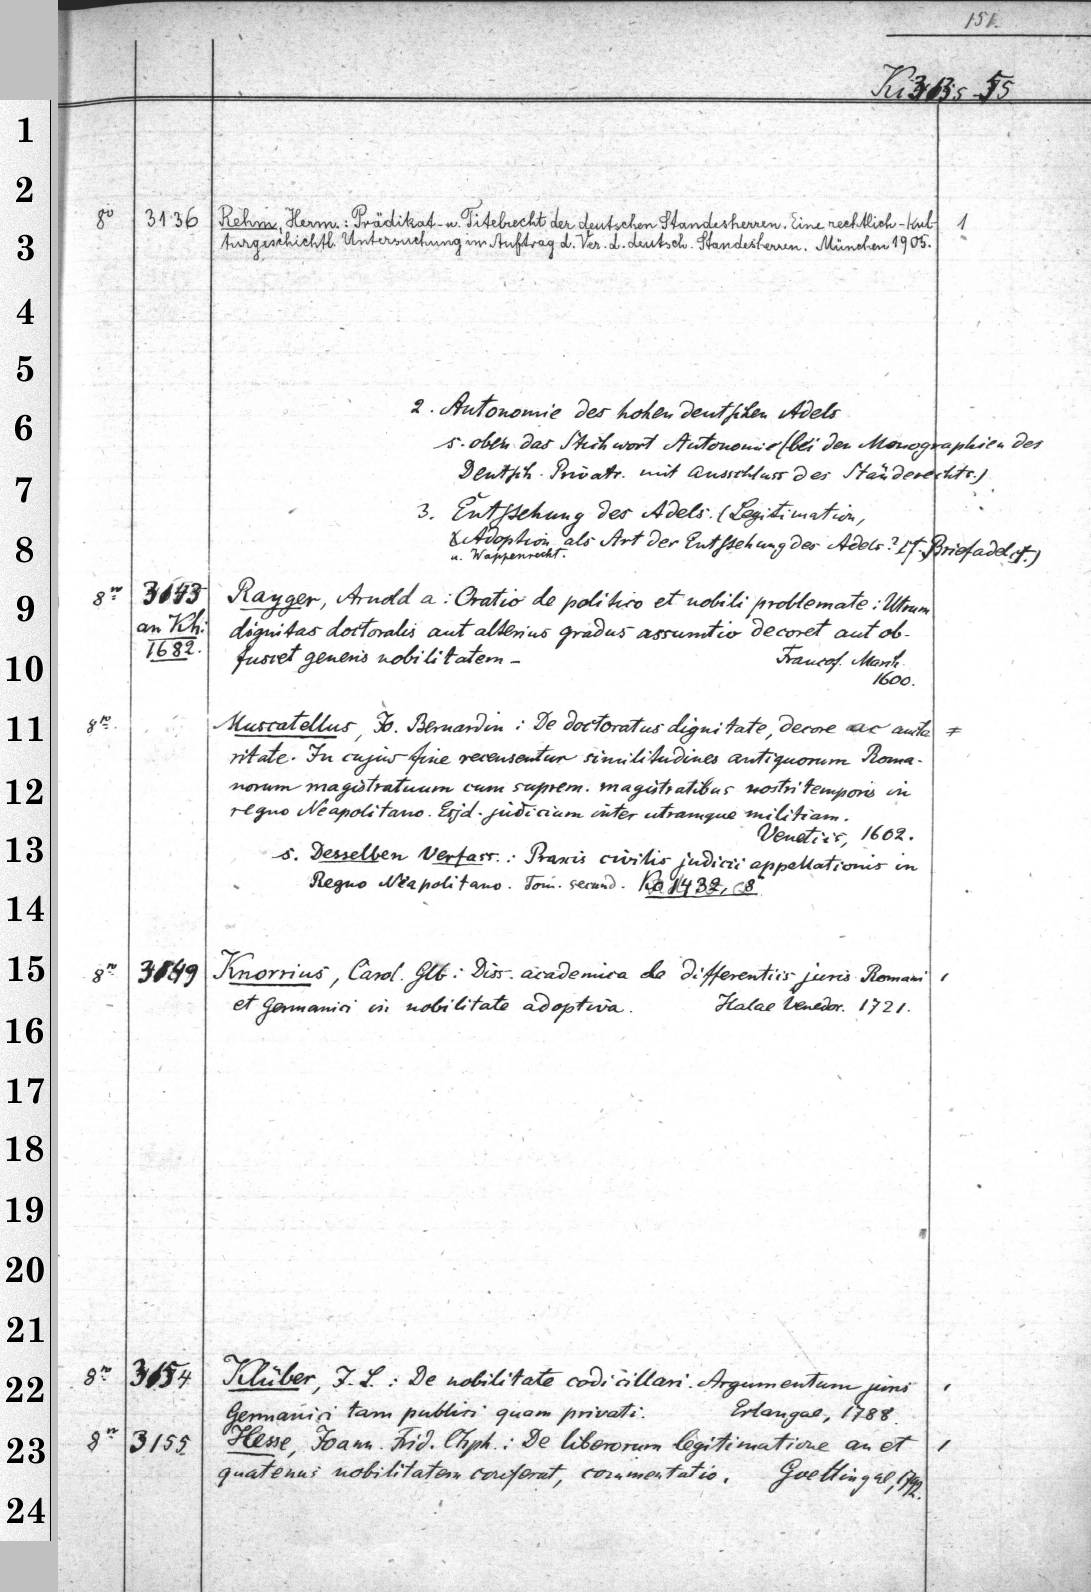 151.
Ki 3135-55
1
2
8° 3136 Rehm, Herm.: Prädikat- u. Titelrecht der deutschen Standesherren. Eine rechtlich-kul- 1
3 turgeschichtl. Untersuchung im Auftrag d. Ver. d. deutsch. Standesherren. München 1905.
4
5
2. Autonomie des hohen deutschen Adels
6 s. oben das Stichwort Autonomie (bei den Monographien des
7 Deutsch. Privatr. mit Ausschluss des Ständerechts.)
3. Entstehung des Adels. (Legitimation,
8 Adoption als Art der Entstehung des Adels? cf. Briefadel cf.)
u. Wappenrecht.
8° 3143 Rayger, Arnold a: Oratio de politico et nobili problemate: Utrum
9 an Kh: dignitas doctoralis aut alterius gradus assumtio decoret aut ob-
10 1682. fuscet generis nobilitatem - Francof. March.
1600.
11 8° Muscatellus, Jo. Bernardin: De doctoratus dignitate, decore ac aucto
ritate. In cujus fine recensentur similitudines antiquorum Roma-
12 norum magistratuum cum suprem. magistratibus nostri temporis in
regno Neapolitano. Ejsd. judicium inter utramque militiam.
Venetiis, 1602.
13 s. Desselben Verfass.: Praxis civilis judicii appellationis in
Regno Neapolitano. Tom. secund. Ka 1432, 8
14
15 8° 3149 Knorrius, Carol. Glb: Diss. academica de differentiis juris Romani
et Germanici in nobilitate adoptiva. Halae Venedor. 1721.
16
17
18
19
20
21
8° 3154 Klüber, J. L.: De nobilitate codicillari. Argumentum juris
22 Germanici tam publici quam privati. Erlangae, 1788.
23 8° 3155 Hesse, Joann. Frid. Chph.: De liberorum legitimatione an et
quatenus nobilitatem conferat, commentatio. Goettingae, 1792.
24